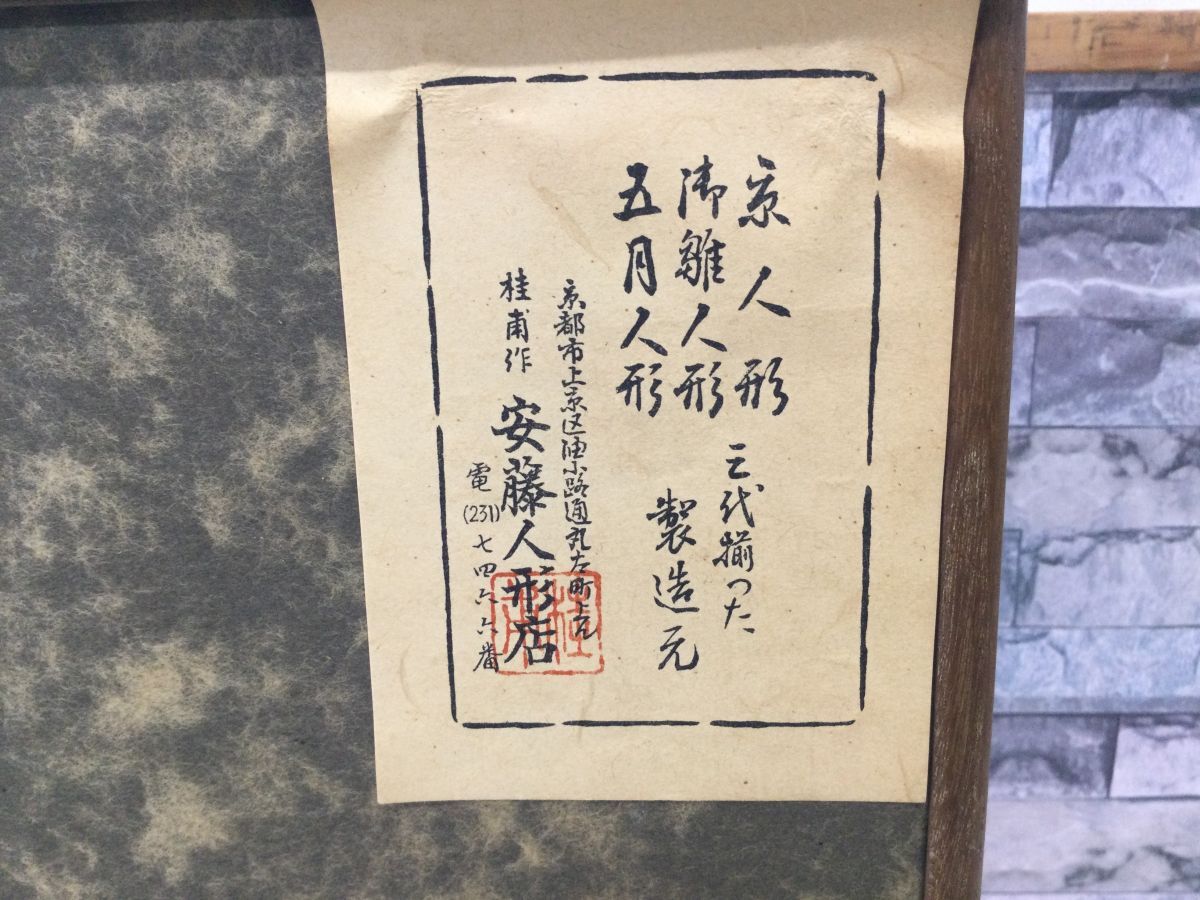 京人形
御雛人形
五月人形
三代揃つた
製造元
京都市上京区油小路通丸太町上ル
桂甫作 安藤人形店
電(231)七四六六番